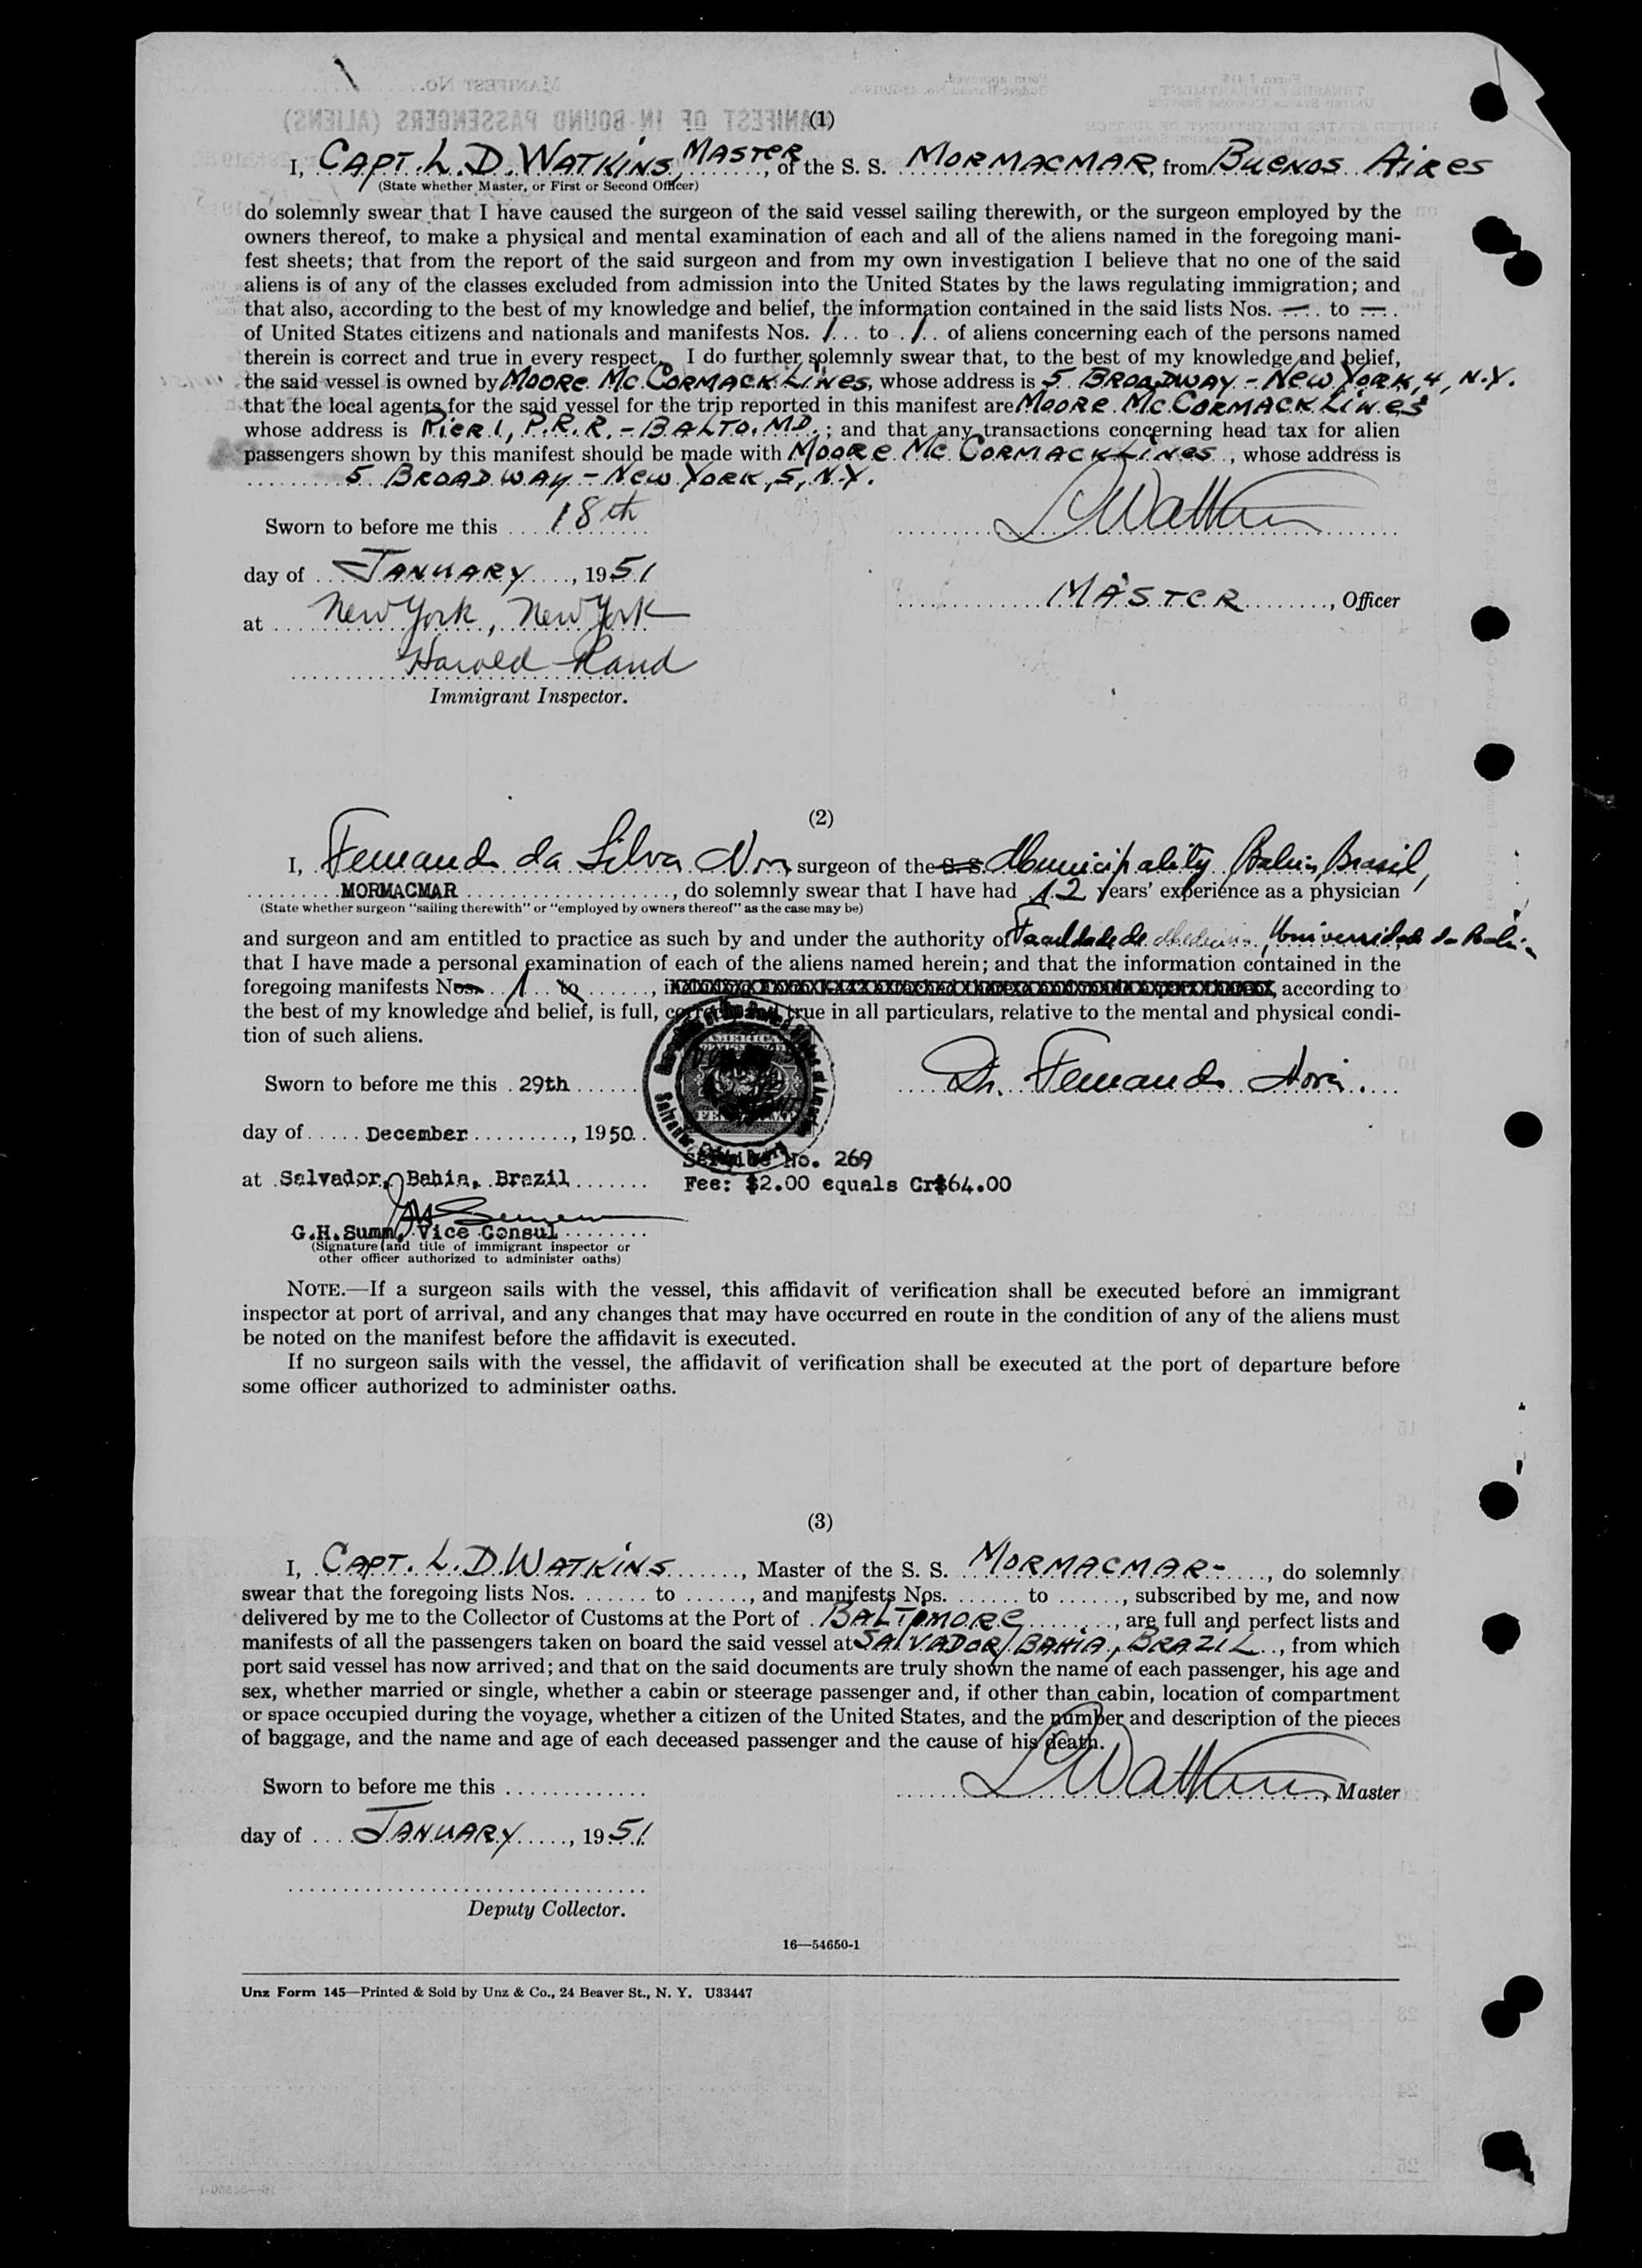 (1)
I, CAPT. L. D. WATKINS, MASTER, of the S. S. MORMACMAR, from BUENOS AIRES
(State whether Master, or First or Second Officer)
do solemnly swear that I have caused the surgeon of the said vessel sailing therewith, or the surgeon employed by the
owners thereof, to make a physical and mental examination of each and all of the aliens named in the foregoing mani-
fest sheets; that from the report of the said surgeon and from my own investigation I believe that no one of the said
aliens is of any of the classes excluded from admission into the United States by the laws regulating immigration; and
that also, according to the best of my knowledge and belief, the information contained in the said lists Nos. — to —
of United States citizens and nationals and manifests Nos. 1 to 1 of aliens concerning each of the persons named
therein is correct and true in every respect. I do further solemnly swear that, to the best of my knowledge and belief,
the said vessel is owned by MOORE Mc CORMACK LINES, whose address is 5 BROADWAY - NEW YORK, 4, N.Y.
that the local agents for the said vessel for the trip reported in this manifest are MOORE Mc CORMACK LINES
whose address is PIER 1, P.R.R. - BALTO. MD.; and that any transactions concerning head tax for alien
passengers shown by this manifest should be made with MOORE Mc CORMACK LINES, whose address is
5 BROADWAY - NEW YORK, 5, N.Y.
Sworn to before me this 18th
L D Watkins
day of JANUARY, 1951
MASTER, Officer
at New York, New York
Harold Rand
Immigrant Inspector.
(2)
I, Fernando da Silva surgeon of the S. S. Municipality Bahia, Brasil,
MORMACMAR, do solemnly swear that I have had 12 years' experience as a physician
(State whether surgeon "sailing therewith" or "employed by owners thereof" as the case may be)
and surgeon and am entitled to practice as such by and under the authority of Faculdade de Medicina, Universidade da Bahia
that I have made a personal examination of each of the aliens named herein; and that the information contained in the
foregoing manifests Nos. 1 to, according to
the best of my knowledge and belief, is full, correct and true in all particulars, relative to the mental and physical condi-
tion of such aliens.
Sworn to before me this 29th
Dr. Fernando
day of December, 1950
Service No. 269
at Salvador, Bahia, Brazil
Fee: $2.00 equals Cr$64.00
G.H.Summ, Vice Consul
(Signature and title of immigrant inspector or
other officer authorized to administer oaths)
NOTE.—If a surgeon sails with the vessel, this affidavit of verification shall be executed before an immigrant
inspector at port of arrival, and any changes that may have occurred en route in the condition of any of the aliens must
be noted on the manifest before the affidavit is executed.
If no surgeon sails with the vessel, the affidavit of verification shall be executed at the port of departure before
some officer authorized to administer oaths.
(3)
I, CAPT. L. D. WATKINS, Master of the S. S. MORMACMAR-, do solemnly
swear that the foregoing lists Nos. to, and manifests Nos. to, subscribed by me, and now
delivered by me to the Collector of Customs at the Port of BALTIMORE, are full and perfect lists and
manifests of all the passengers taken on board the said vessel at SALVADOR, BAHIA, BRAZIL, from which
port said vessel has now arrived; and that on the said documents are truly shown the name of each passenger, his age and
sex, whether married or single, whether a cabin or steerage passenger and, if other than cabin, location of compartment
or space occupied during the voyage, whether a citizen of the United States, and the number and description of the pieces
of baggage, and the name and age of each deceased passenger and the cause of his death.
Sworn to before me this
L D Watkins, Master
day of JANUARY, 1951
Deputy Collector.
16—54650-1
Unz Form 145—Printed & Sold by Unz & Co., 24 Beaver St., N. Y. U33447